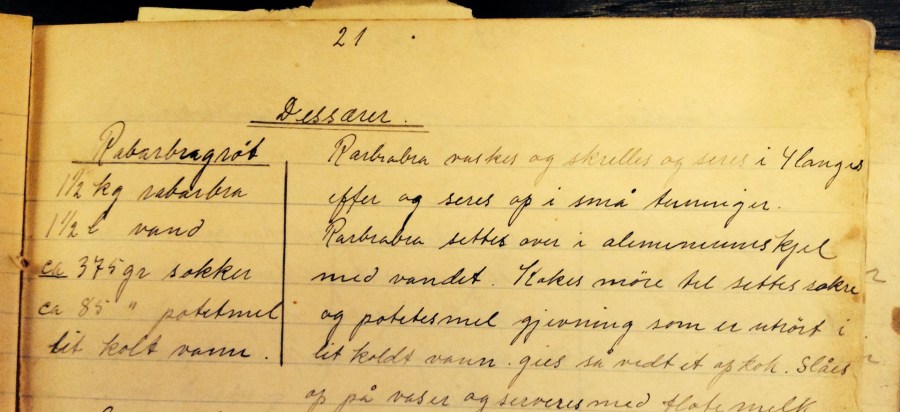 21
Dessærer.
Rabarbragrøt
1½ kg rabarbra
1½ l vand
ca 375 gr sokker
ca 85 " potetmel
lit kolt vann.
Rarbrabra vaskes og skrelles og seres i 4 langs
efter og seres op i små terninger.
Rarbrabra settes over i alumeniumskjel
med vandet. Kokes møre til settes sokre
og potetesmel gjevning som er utrørt i
lit koldt vann. gies så vedt et opkok. Slåes
op på vaser og serveres med fløte melk